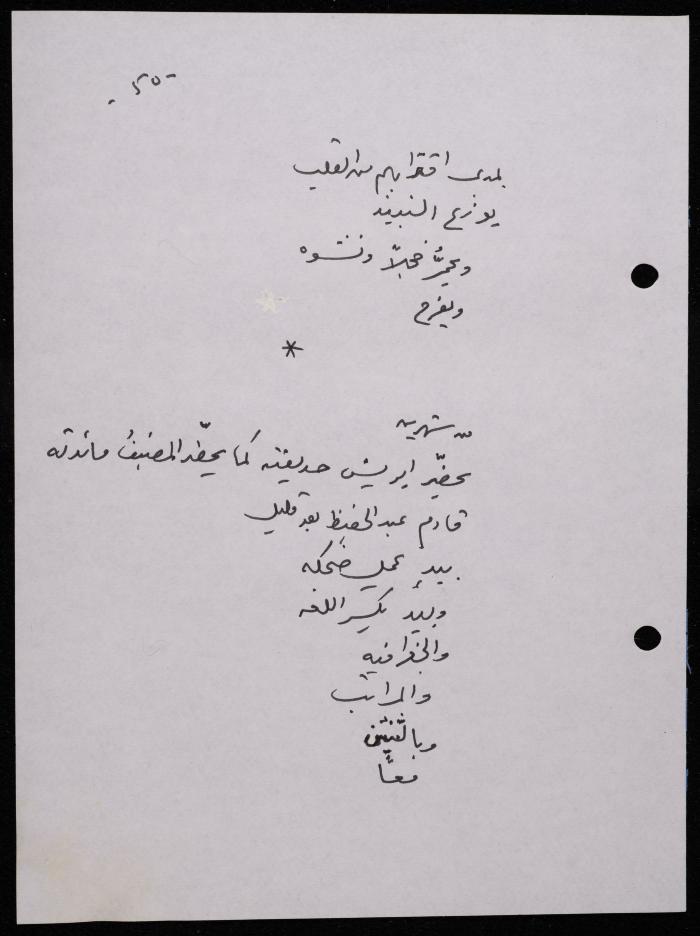 - ٢٥ -
بمدى اقترابهم من القلب
يوزع النبيذ
ويحمرُّ خجلاً ونشوه
ويفرح
*
من شهرين
يحضّر ايريش حديقته كما يحضّر المضيفُ مائدته
قادم عبد الحفيظ بعد قليل
بيدٍ يحمل ضحكه
وبيدٍ يكسِر اللغه
والجغرافيه
والمراتب
وبالثنتين
معاً